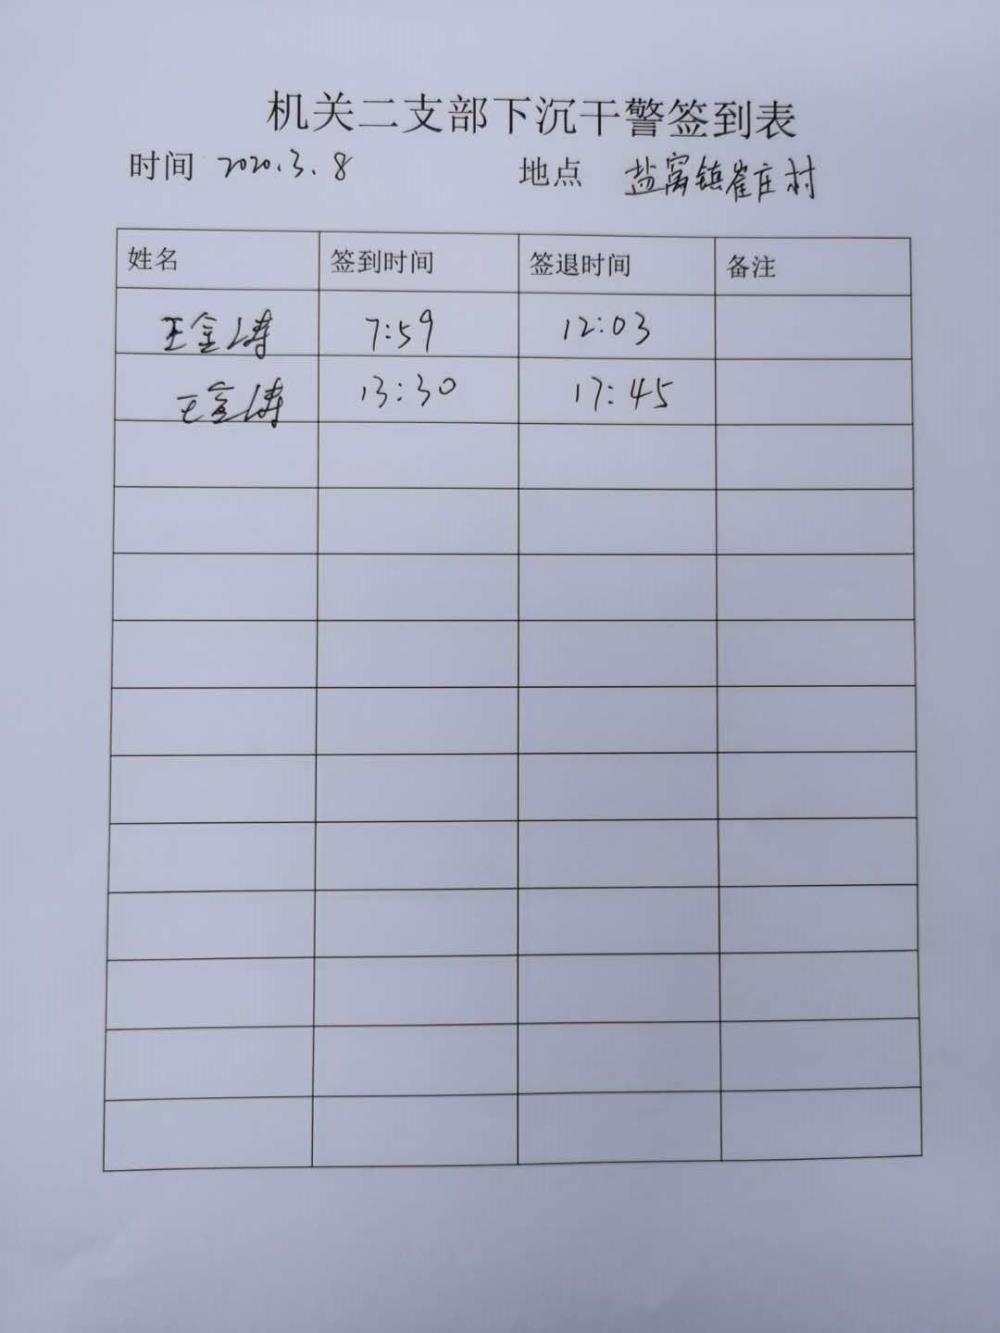 机关二支部下沉干警签到表
时间 2020.3.8 地点 盐窝镇崔庄村
姓名 签到时间 签退时间 备注
王金涛 7:59 12:03
王金涛 13:30 17:45